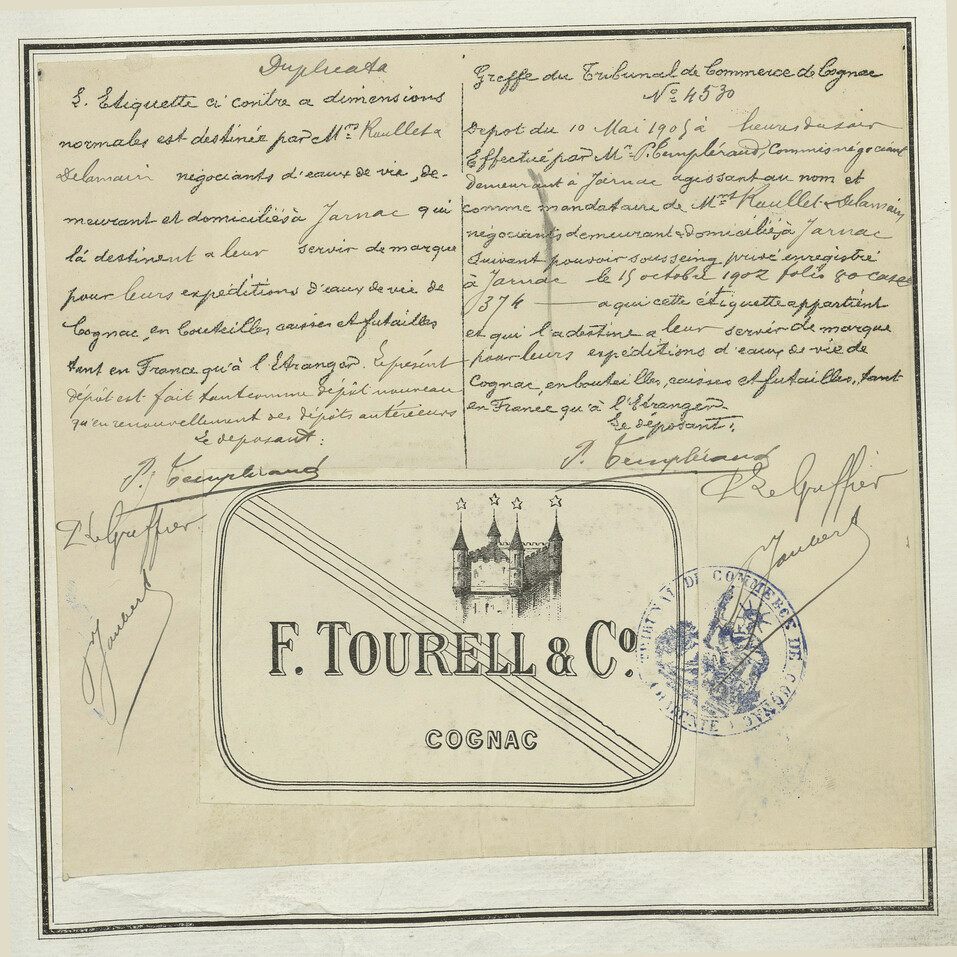 Duplicata
L. Etiquette ci contre a dimensions
normales est destinée par Mrs Roullet &
Delamain négociants d'eaux de vie, de-
meurant et domiciliés à Jarnac qui
la destinent a leur servir de marque
pour leurs expéditions d'eaux de vie de
Cognac, en bouteilles caisses et futailles
tant en France qu'à l'Etranger. Le présent
dépôt est fait tant comme dépôt nouveau
qu'en renouvellement des dépôts antérieurs
Le déposant:
P. Templéraud
Le Greffier
Jaubert
Greffe du Tribunal de Commerce de Cognac
No 4530
Depot du 10 Mai 1905 à heures du soir
Effectué par Mr P. Templéraud, Commis négociant
demeurant à Jarnac agissant au nom et
comme mandataire de Mrs Roullet & Delamain
négociants demeurant & domiciliés à Jarnac
Suivant pouvoir sousseing privé enregistré
à Jarnac le 15 octobre 1902 folio 80 case
374 — a qui cette étiquette appartient
et qui l'a destine a leur servir de marque
pour leurs expéditions d'eaux de vie de
Cognac, en bouteilles, caisses et futailles, tant
en France qu'à l'Etranger
Le déposant:
P. Templéraud
Le Greffier
Jaubert
F. TOURELL & Co.
COGNAC
TRIBUNAL DE COMMERCE DE COGNAC
CHARENTE